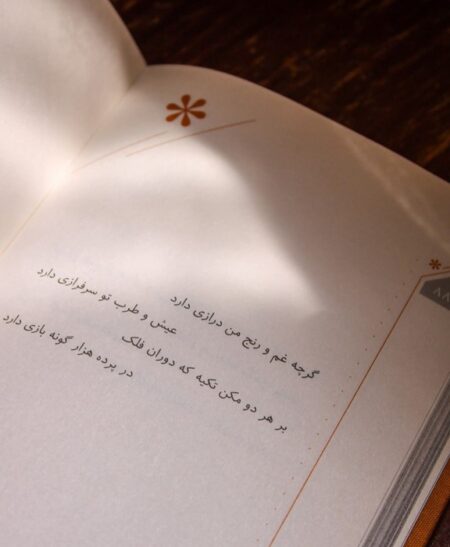 گرچه غم و رنج من درازی دارد
عیش و طرب تو سرفرازی دارد
بر هر دو مکن تکیه که دوران فلک
در پرده هزار گونه بازی دارد